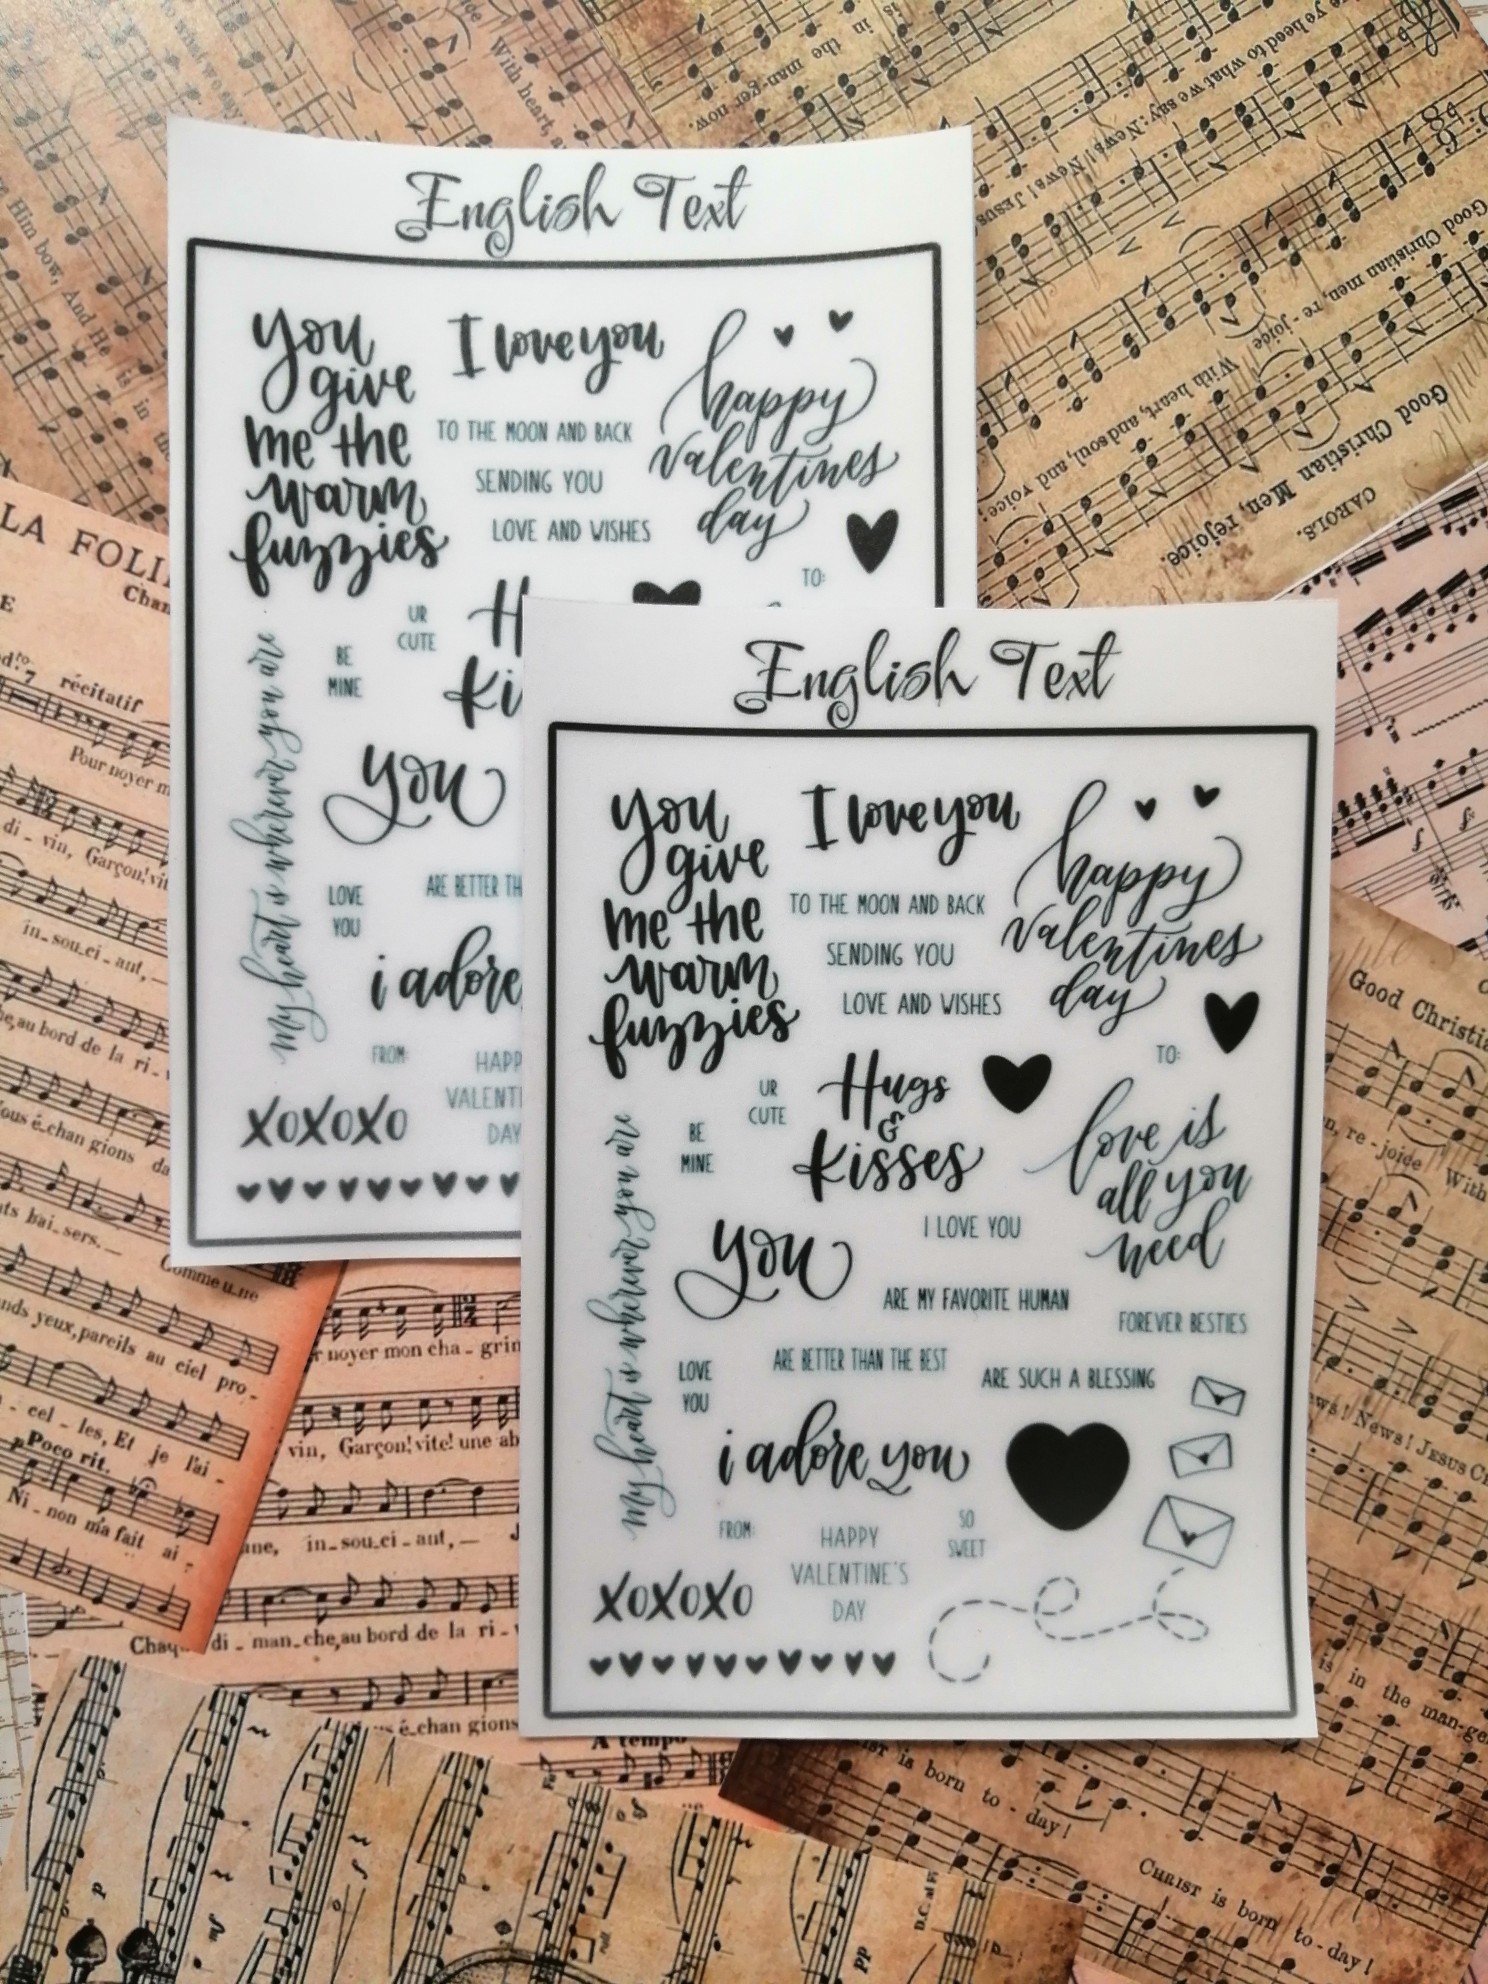 English Text
you
give
me the
warm
fuzzies
I love you
TO THE MOON AND BACK
SENDING YOU
LOVE AND WISHES
happy
valentines
day
TO:
UR
CUTE
BE
MINE
my heart is wherever you are
you
LOVE
YOU
ARE BETTER
i adore
FROM:
XOXOXO
DAY
English Text
you
give
me the
warm
fuzzies
I love you
TO THE MOON AND BACK
SENDING YOU
LOVE AND WISHES
happy
valentines
day
TO:
UR
CUTE
BE
MINE
Hugs
&
Kisses
love is
all you
need
my heart is wherever you are
I LOVE YOU
you
ARE MY FAVORITE HUMAN
FOREVER BESTIES
LOVE
YOU
ARE BETTER THAN THE BEST
ARE SUCH A BLESSING
i adore you
FROM:
HAPPY
VALENTINE'S
DAY
SO
SWEET
XOXOXO
LA FOLI
récitatif
Pour noyer
di - vin, Garçon! vi
in - sou.ci - aut,
au bord de la ri -
é.chan gions
bai - sers.
Comme u.ne
yeux, pareils au ciel pro -
cel - les, Et je l'ai -
Poco rit.
Ni - non m'a fait ai -
noyer mon cha - grin
vin, Garçon! vite! une
in - sou.ci - aut,
di - man - che, au bord de la ri -
é.chan gions
A tempo
in the man-ger now.
With heart,
Him bow, And He is in
ye need to what we say: News! News! Jesus
Good Christian men, re - joice
With heart, and soul, and voice;
Good Christian Men, rejoice.
CAROLS.
Good Christi
re - joice With
News! Jesus
is in the man-ge
Christ is born to - day!
Christ is born to - day!